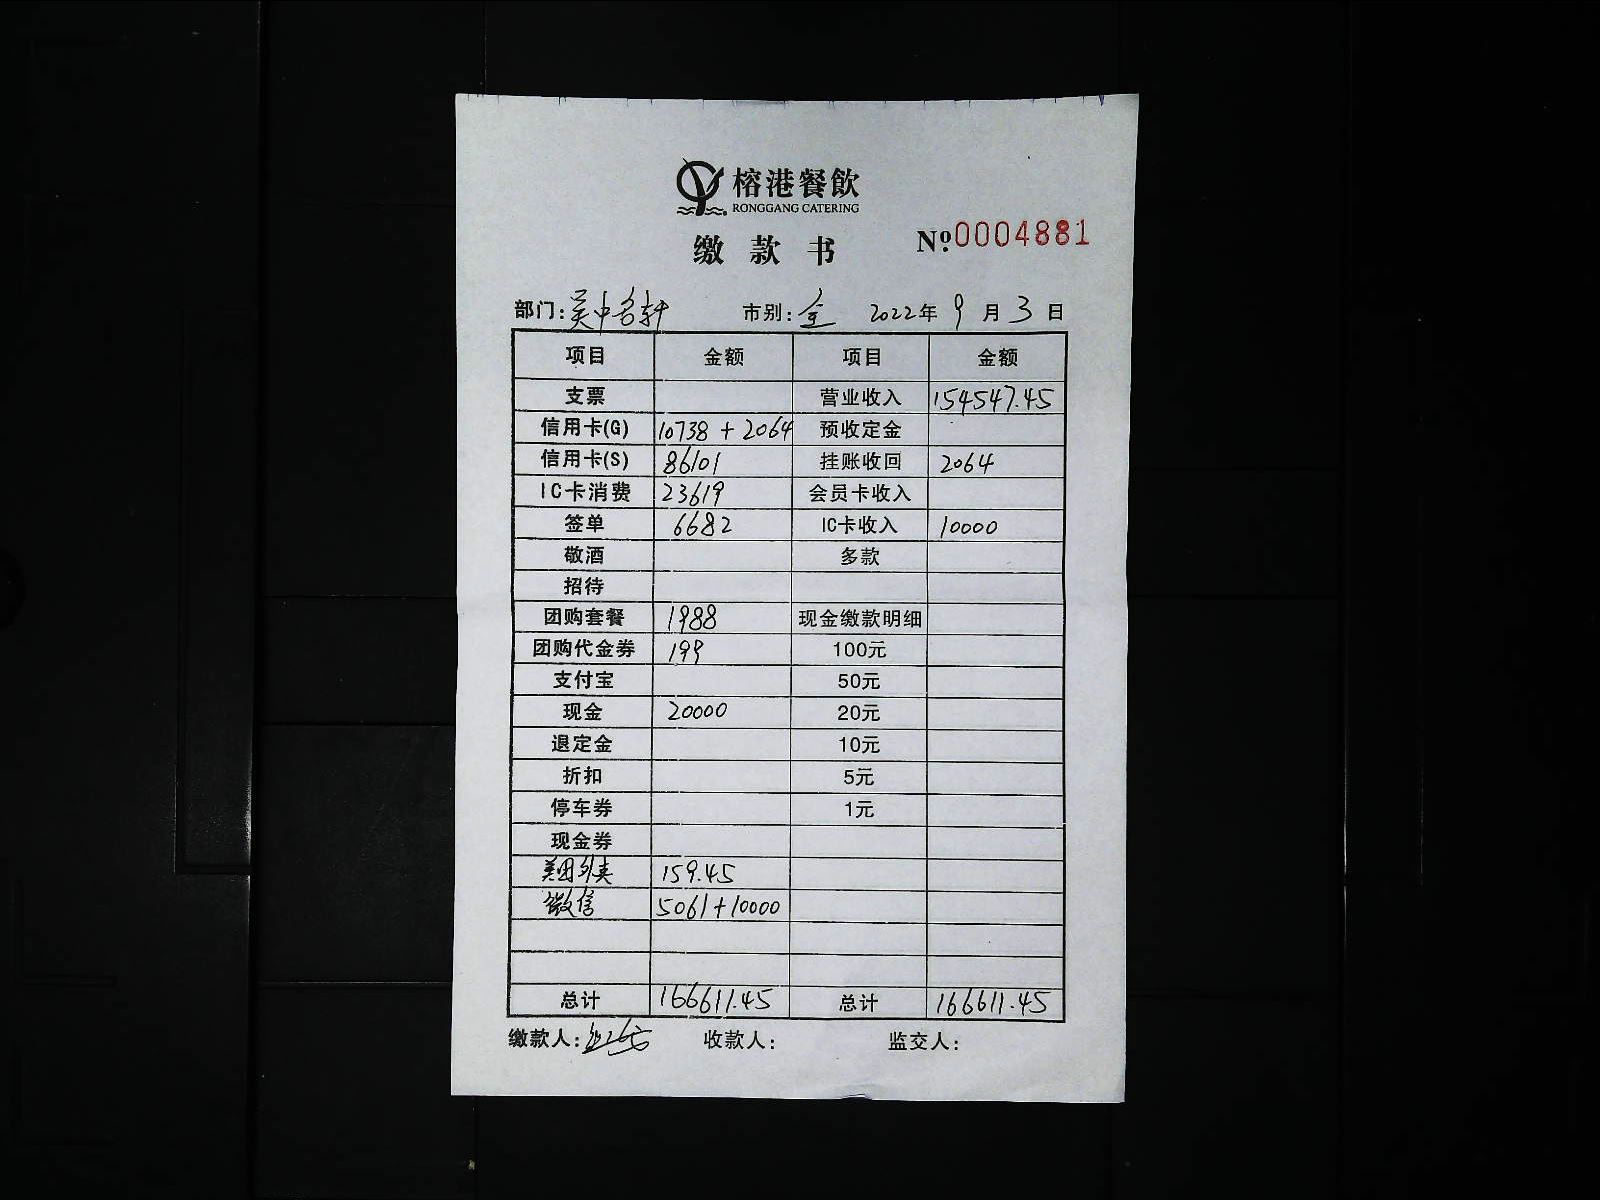 榕港餐飲
RONGGANG CATERING
缴款书 №0004881
部门:吴中名轩 市别:全 2022年9月3日
项目 金额 项目 金额
支票 营业收入 154547.45
信用卡(G) 10738+2064 预收定金
信用卡(S) 86101 挂账收回 2064
IC卡消费 23619 会员卡收入
签单 6682 IC卡收入 10000
敬酒 多款
招待
团购套餐 1988 现金缴款明细
团购代金券 199 100元
支付宝 50元
现金 20000 20元
退定金 10元
折扣 5元
停车券 1元
现金券
美团外卖 159.45
微信 5061+10000
总计 166611.45 总计 166611.45
缴款人: 收款人: 监交人: